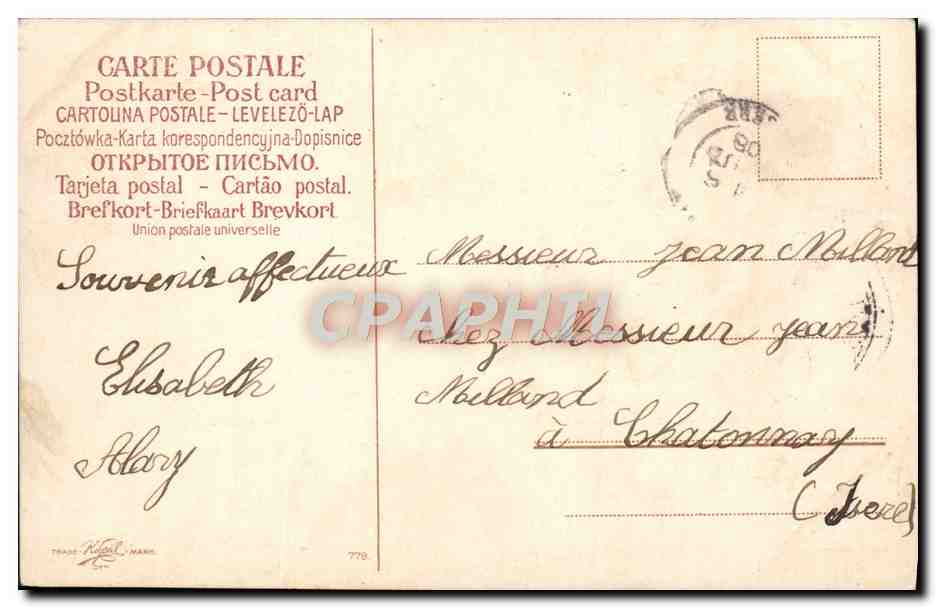 CARTE POSTALE
Postkarte - Post card
CARTOLINA POSTALE - LEVELEZŐ-LAP
Pocztówka-Karta korespondencyjna-Dopisnice
ОТКРЫТОЕ ПИСЬМО.
Tarjeta postal - Cartão postal.
Brefkort-Briefkaart Brevkort
Union postale universelle
Souvenir affectueux
Elisabeth
Alary
Messieur jean Milland
chez Messieur jean
Milland
à Chatonnay
(Isere)
CPAPHIL
08
TRADE - MARK.
778.